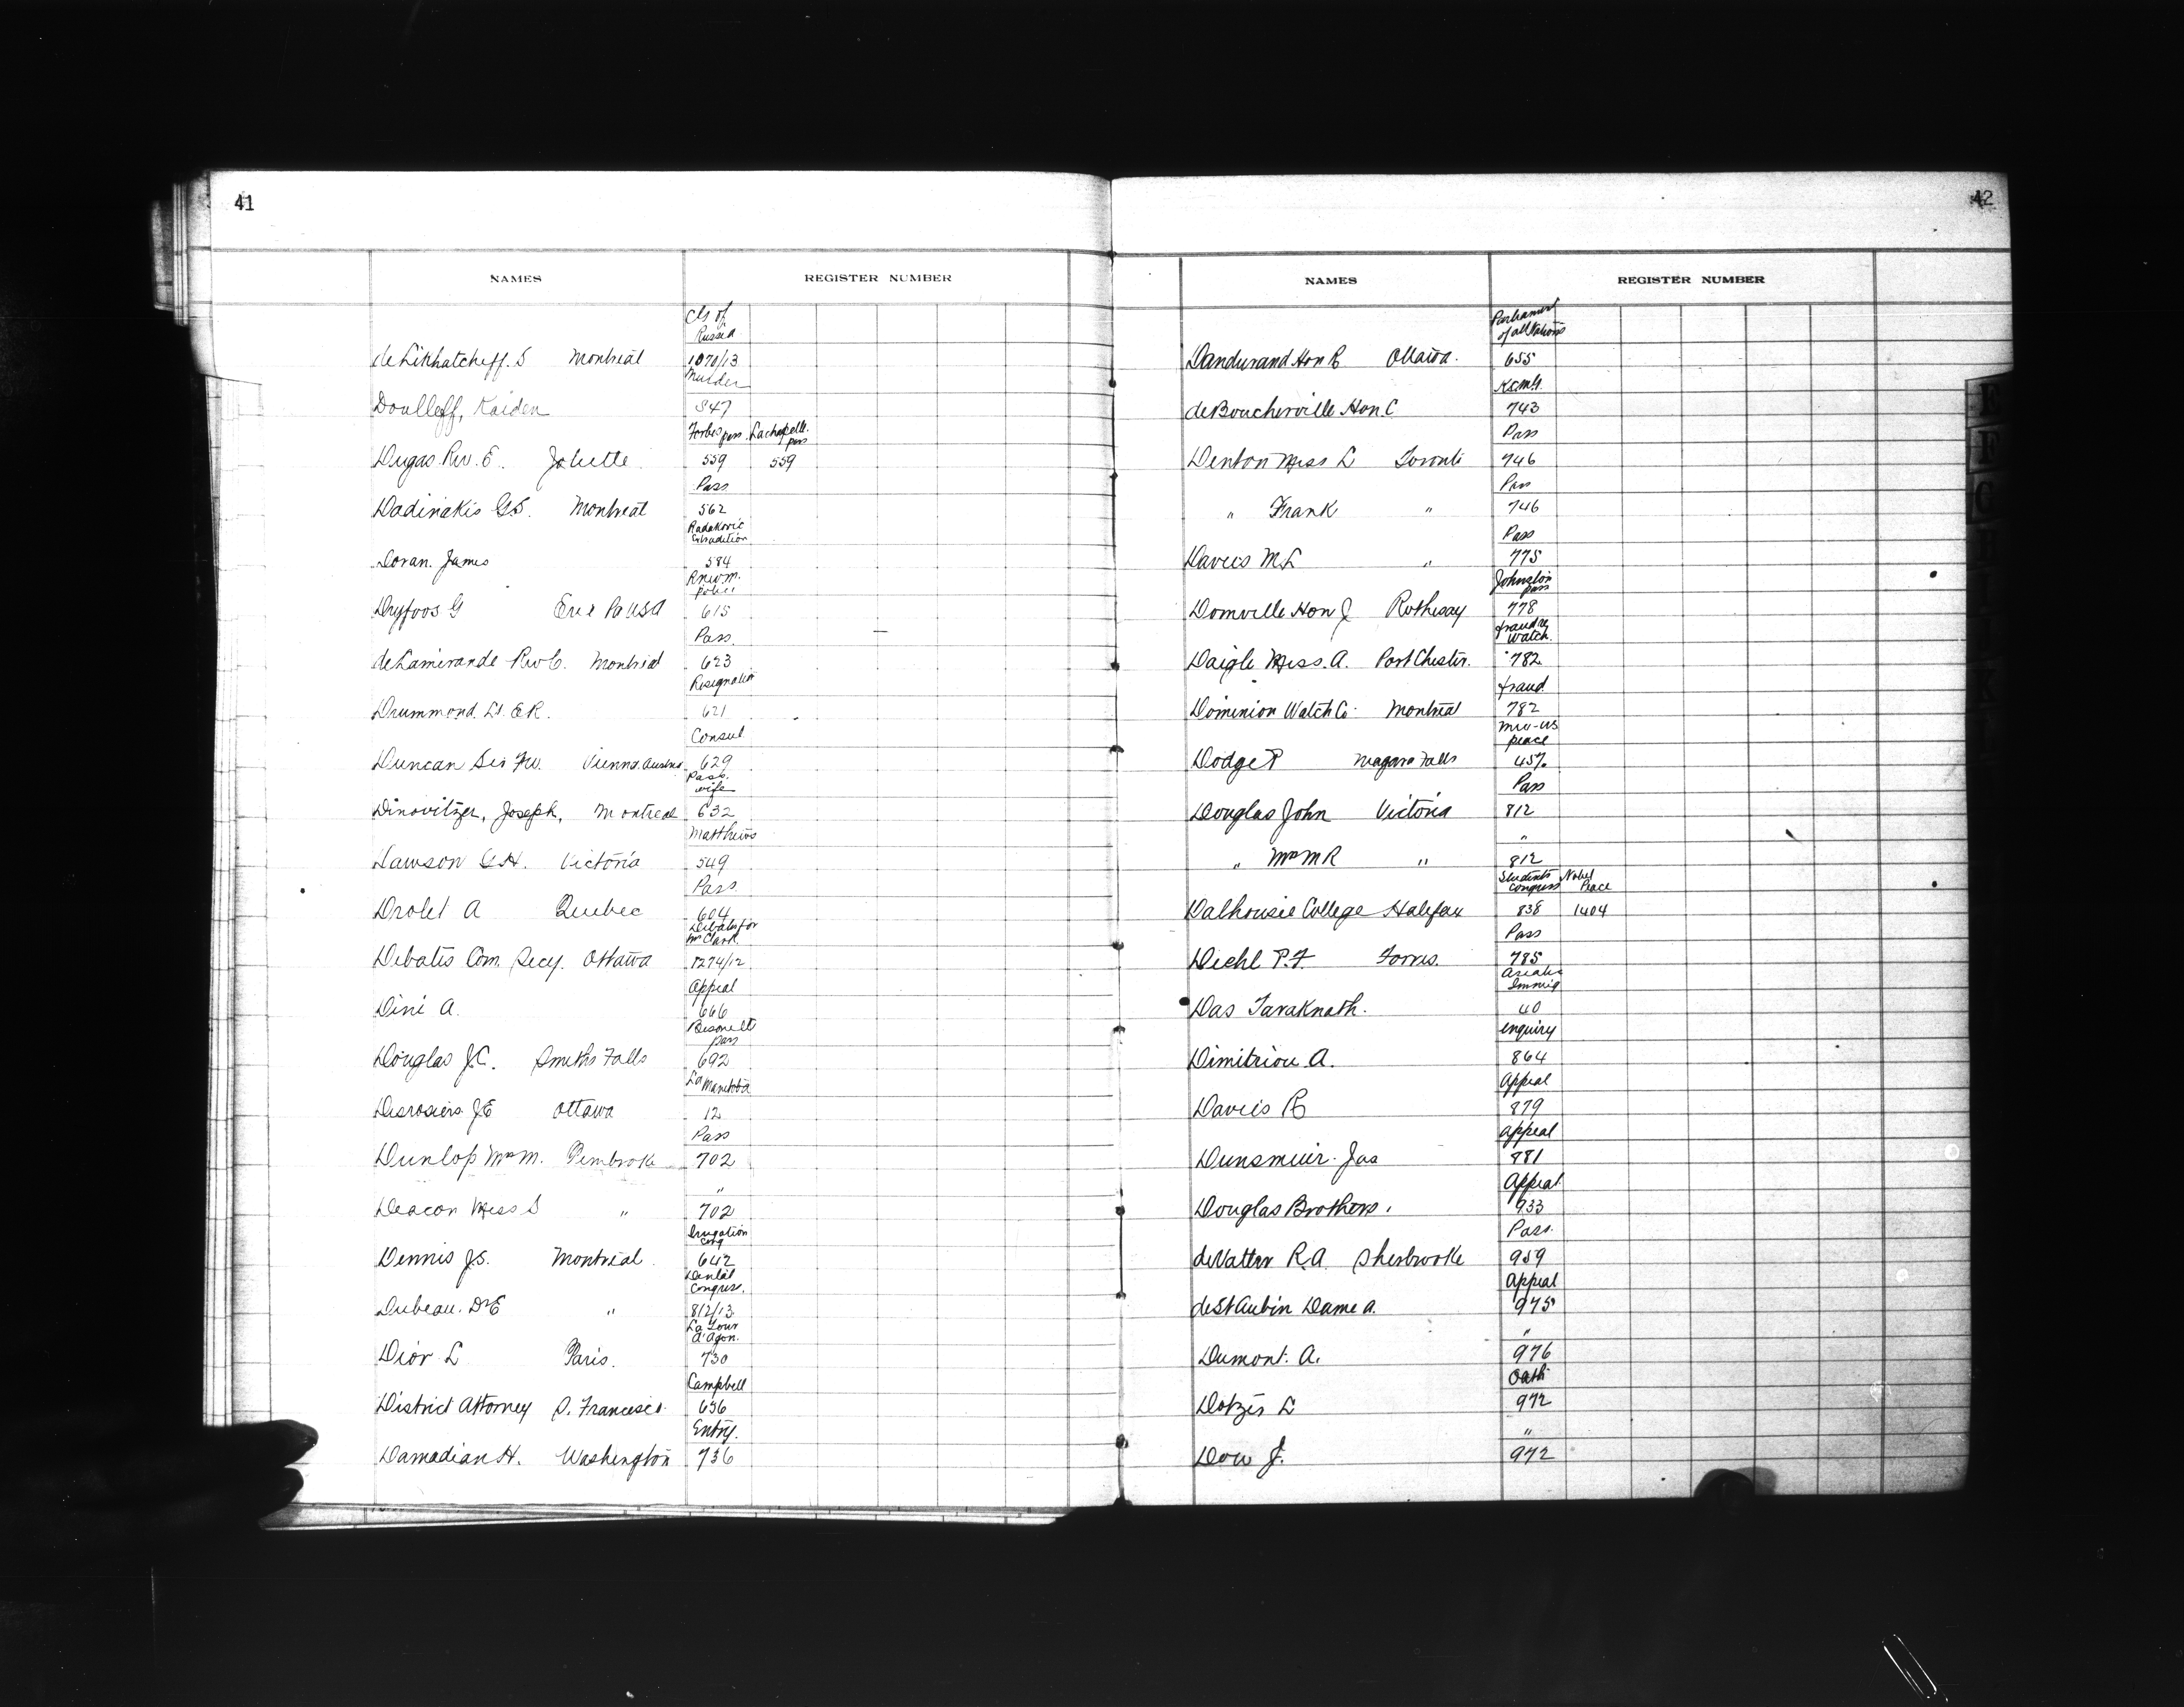 41
NAMES REGISTER NUMBER
CG of
Russia
de Likhatcheff. S Montreal 1070/13
Murder
Doulleff, Kaiden 547
Forbes pass Lachapelle pass
Dugas Rev. E. Joliette 559 559
Pass
Dadinakis G.S. Montreal 562
Radakovic
Extradition
Doran. James 584
RNWM.
police
Dryfoos G Erie Pa USA 615
Pass
de Lamirande Rev C. Montreal 623
Resignation
Drummond Lt. E.R. 621
Consul
Duncan Sir Fw. Vienna Austria 629
Pass.
wife
Dinovitzer, Joseph, Montreal 632
Matthews
Dawson G.H. Victoria 549
Pass
Drolet A Quebec 604
Debates for
Mr Clark
Debates Com. Secy. Ottawa 1274/12
Appeal
Dini A. 666
pass
Douglas J.C. Smiths Falls 692
La Manitoba
Desrosiers J.E Ottawa 12
Pass
Dunlop Mrs M. Pembroke 702
"
Deacon Miss S " 702
Irrigation
Cong
Dennis J.S. Montreal 642
Dental
Congress.
Dubeau. Dr E " 812/13
La Tour
d'Agon.
Dior L Paris. 730
Campbell
District Attorney S. Francisco 656
Entry.
Damadian H. Washington 736
42
NAMES REGISTER NUMBER
Parliament
of all Nations
Dandurand Hon R Ottawa. 655
KCMG.
de Boucherville Hon. C 743
Pass
Denton Miss L Toronto 746
Pass
" Frank " 746
Pass
Davies M.L " 775
Johnston
pass
Domville Hon J Rothesay 778
fraud re
watch.
Daigle Miss. A. Port Chester. 782
fraud
Dominion Watch Co. Montreal 782
peace
Dodge P Niagara Falls 457
Pass
Douglas John Victoria 812
"
" Mrs M R " 812
Students Congress Nobel Peace
Dalhousie College Halifax 838 1404
Pass
Diehl P.F. 785
Asiatic
Immig
Das Taraknath. 40
enquiry
Dimitriou A. 864
Appeal
Davies R 879
Appeal
Dunsmuir. Jas 881
Appeal
Douglas Brothers. 933
Pass.
R.A. Sherbrooke 959
Appeal
de St Aubin Dame A. 975
"
Dumont. A. 976
Oath
Dotzer L 972
"
Dow J. 972